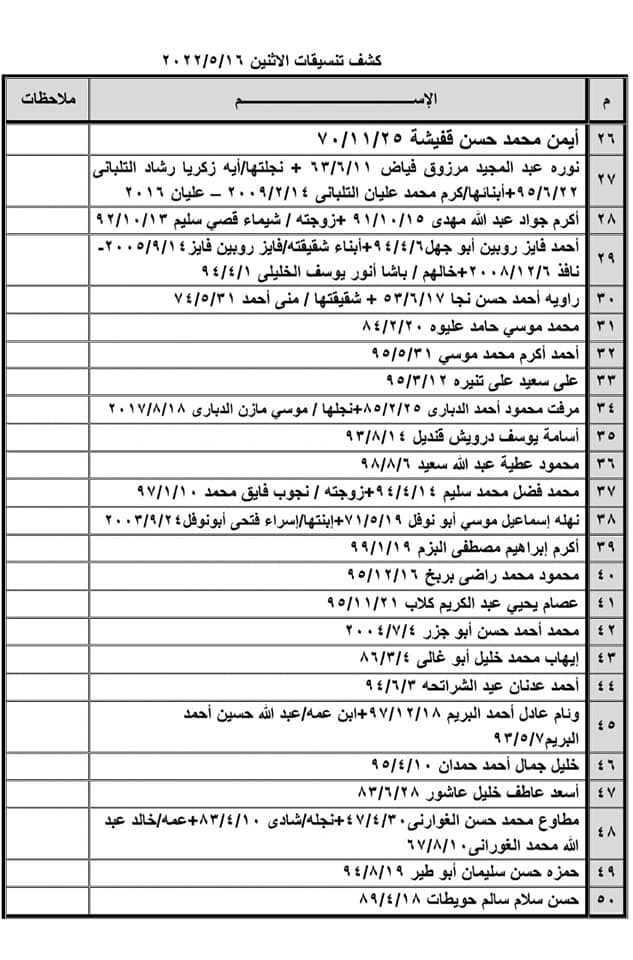 كشف تنسيقات الاثنين ٢٠٢٢/٥/١٦
م الإســـــم ملاحظات
٢٦ أيمن محمد حسن قفيشة ٧٠/١١/٢٥
٢٧ نوره عبد المجيد مرزوق فياض ٦٣/٦/١١ + نجلتها/أيه زكريا رشاد التلبانى
٩٥/٦/٢٢+أبنائها/كرم محمد عليان التلبانى ٢٠٠٩/٢/١٤ – عليان ٢٠١٦
٢٨ أكرم جواد عبد الله مهدى ٩١/١٠/١٥ +زوجته / شيماء قصي سليم ٩٢/١٠/١٣
٢٩ أحمد فايز روبين أبو جهل٩٤/٤/٦+أبناء شقيقته/فايز روبين فايز٢٠٠٥/٩/١٤-
نافذ ٢٠٠٨/١٢/٦+خالهم / باشا أنور يوسف الخليلى ٩٤/٤/١
٣٠ راويه أحمد حسن نجا ٥٣/٦/١٧ + شقيقتها / منى أحمد ٧٤/٥/٣١
٣١ محمد موسي حامد عليوه ٨٤/٢/٢٠
٣٢ أحمد أكرم محمد موسي ٩٥/٥/٣١
٣٣ على سعيد على تنيره ٩٥/٣/١٢
٣٤ مرفت محمود أحمد الدبارى ٨٥/٢/٢٥+نجلها / موسي مازن الدبارى ٢٠١٧/٨/١٨
٣٥ أسامة يوسف درويش قنديل ٩٣/٨/١٤
٣٦ محمود عطية عبد الله سعيد ٩٨/٨/٦
٣٧ محمد فضل محمد سليم ٩٤/٤/١٤+زوجته / نجوب فايق محمد ٩٧/١/١٠
٣٨ نهله إسماعيل موسي أبو نوفل ٧١/٥/١٩+إبنتها/إسراء فتحى أبونوفل٢٠٠٣/٩/٢٤
٣٩ أكرم إبراهيم مصطفى البزم ٩٩/١/١٩
٤٠ محمود محمد راضى بربخ ٩٥/١٢/١٦
٤١ عصام يحيي عبد الكريم كلاب ٩٥/١١/٢١
٤٢ محمد أحمد حسن أبو جزر ٢٠٠٤/٧/٤
٤٣ إيهاب محمد خليل أبو غالى ٨٦/٣/٤
٤٤ أحمد عدنان عيد الشراتحه ٩٤/٦/٣
٤٥ ونام عادل أحمد البريم ٩٧/١٢/١٨+ابن عمه/عبد الله حسين أحمد
البريم٩٣/٥/٧
٤٦ خليل جمال أحمد حمدان ٩٥/٤/١٠
٤٧ أسعد عاطف خليل عاشور ٨٣/٦/٢٨
٤٨ مطاوع محمد حسن الغوارنى٤٧/٤/٣٠+نجله/شادى ٨٣/٤/١٠+عمه/خالد عبد
الله محمد الغورانى٦٧/٨/١٠
٤٩ حمزه حسن سليمان أبو طير ٩٤/٨/١٩
٥٠ حسن سلام سالم حويطات ٨٩/٤/١٨